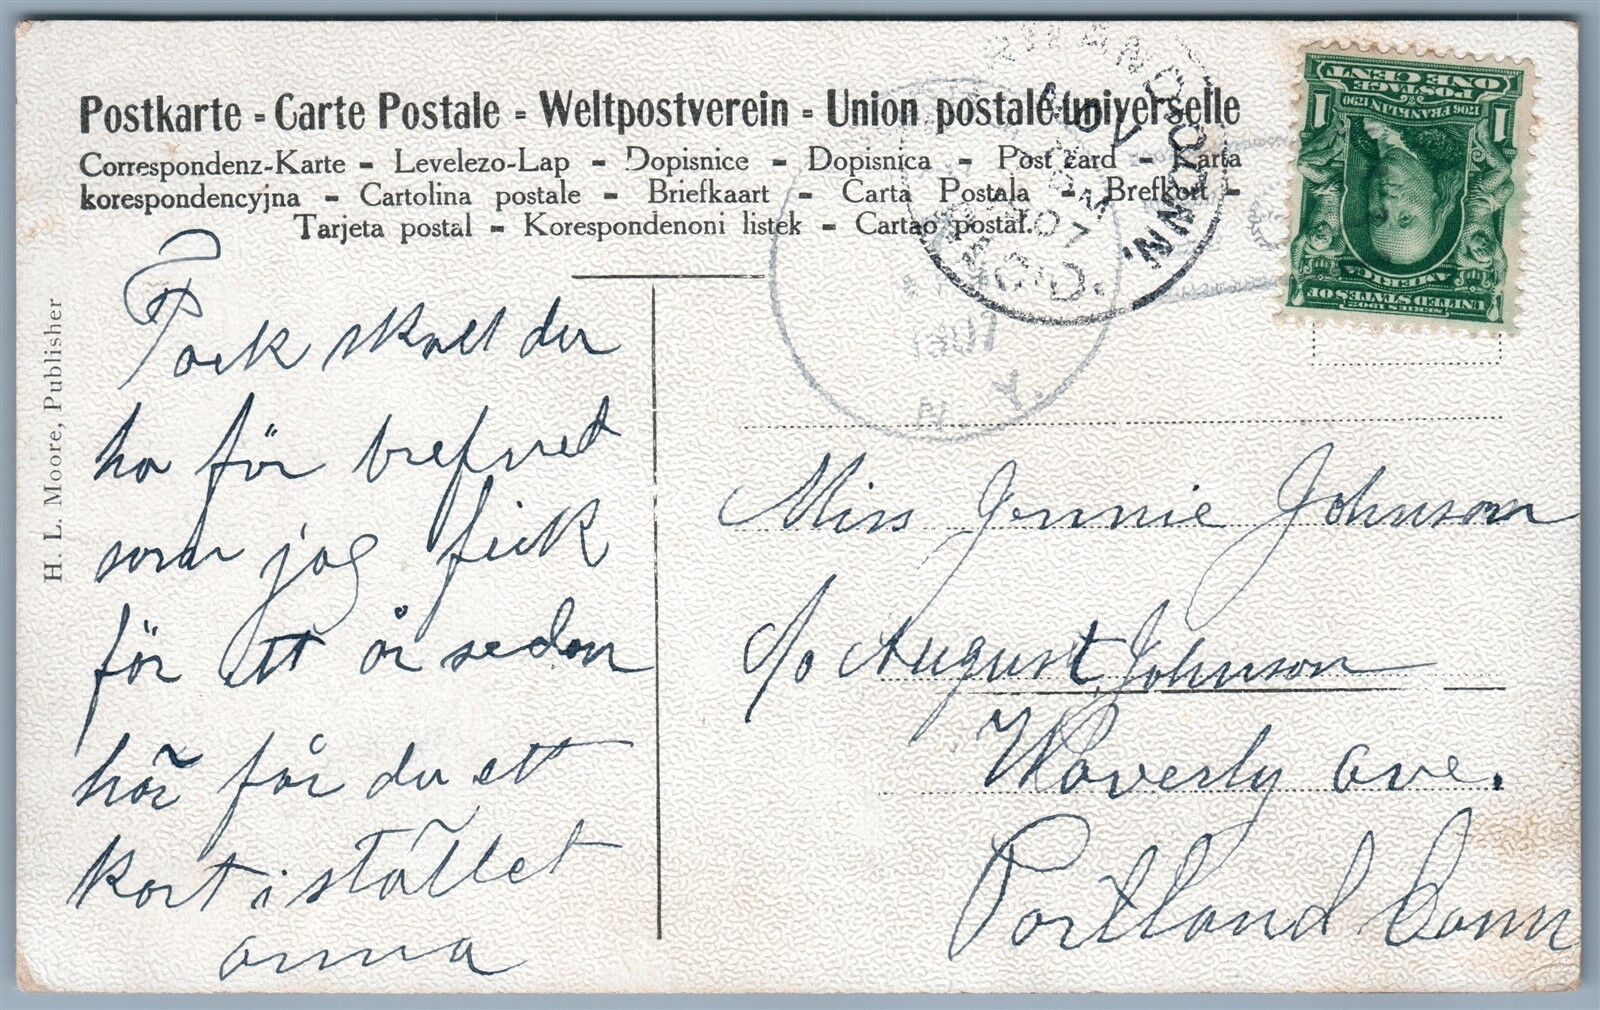 Postkarte - Carte Postale - Weltpostverein - Union postale universelle
Correspondenz-Karte - Levelezo-Lap - Dopisnice - Dopisnica - Post card - Karta
korespondencyjna - Cartolina postale - Briefkaart - Carta Postala - Brefkort -
Tarjeta postal - Korespondenoni listek - Cartao postal.
H. L. Moore, Publisher
NOV
07
REC'D.
N. Y.
ONE CENT
POSTAGE
1706 FRANKLIN 1790
1 1
UNITED STATES OF
AMERICA
SERIES 1902
Tack skall du
ha för brefvet
som jag fick
för ett år sedan
här får du ett
kort i stället
anna
Miss Jennie Johnson
c/o August Johnson
Waverly ave.
Portland Conn